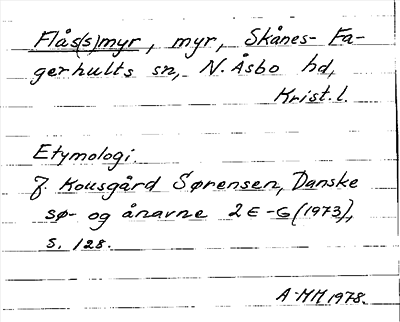 Flås(s)myr, myr, Skånes-Fa-
gerhults sn, N. Åsbo hd,
Krist. l.
Etymologi
J. Kousgård Sørensen, Danske
sø- og ånavne 2 E-G (1973),
s. 128.
A-MM 1978.